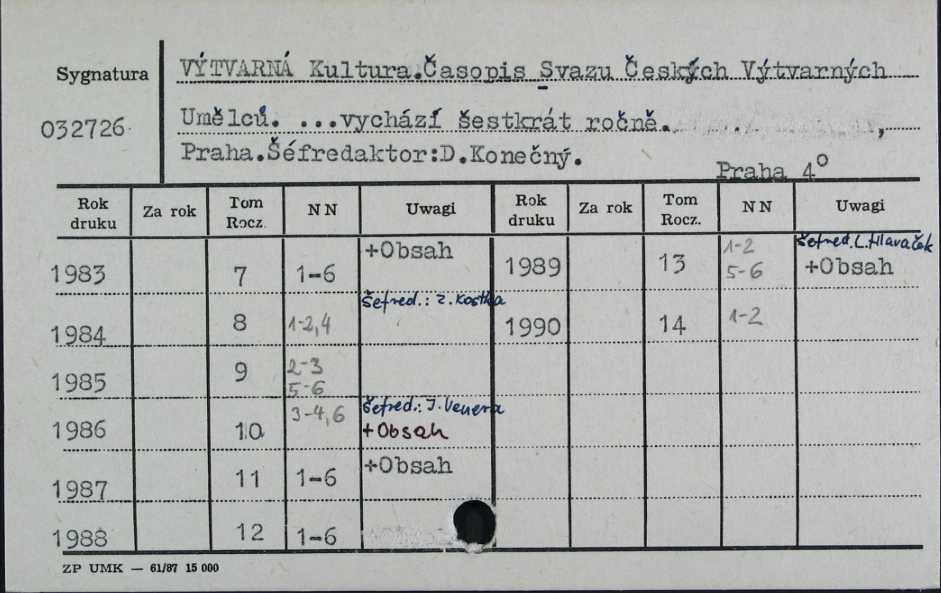 Sygnatura
032726
VÝTVARNÁ Kultura.Časopis Svazu Českých Výtvarných
Umělců. ...vychází šestkrát ročně. ,
Praha.Šéfredaktor:D.Konečný.
Praha 4°
Rok druku Za rok Tom Rocz. NN Uwagi Rok druku Za rok Tom Rocz. NN Uwagi
1983 7 1-6 +Obsah
1984 8 1-2,4 šefred.: Z. Kostka
1985 9 2-3 5-6
1986 10 3-4,6 šefred.: J. Venera +Obsah
1987 11 1-6 +Obsah
1988 12 1-6
1989 13 1-2 5-6 šefred. L. Hlaváček +Obsah
1990 14 1-2
ZP UMK — 61/87 15 000